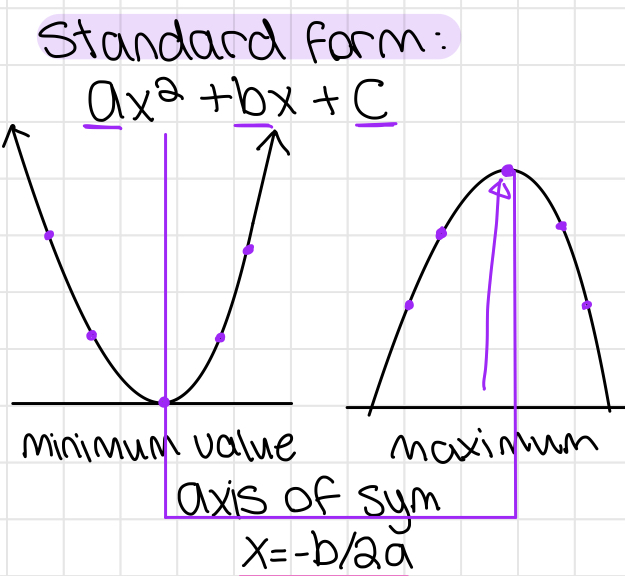 Standard form:
ax² + bx + C
minimum value
maximum
axis of sym
x=-b/2a